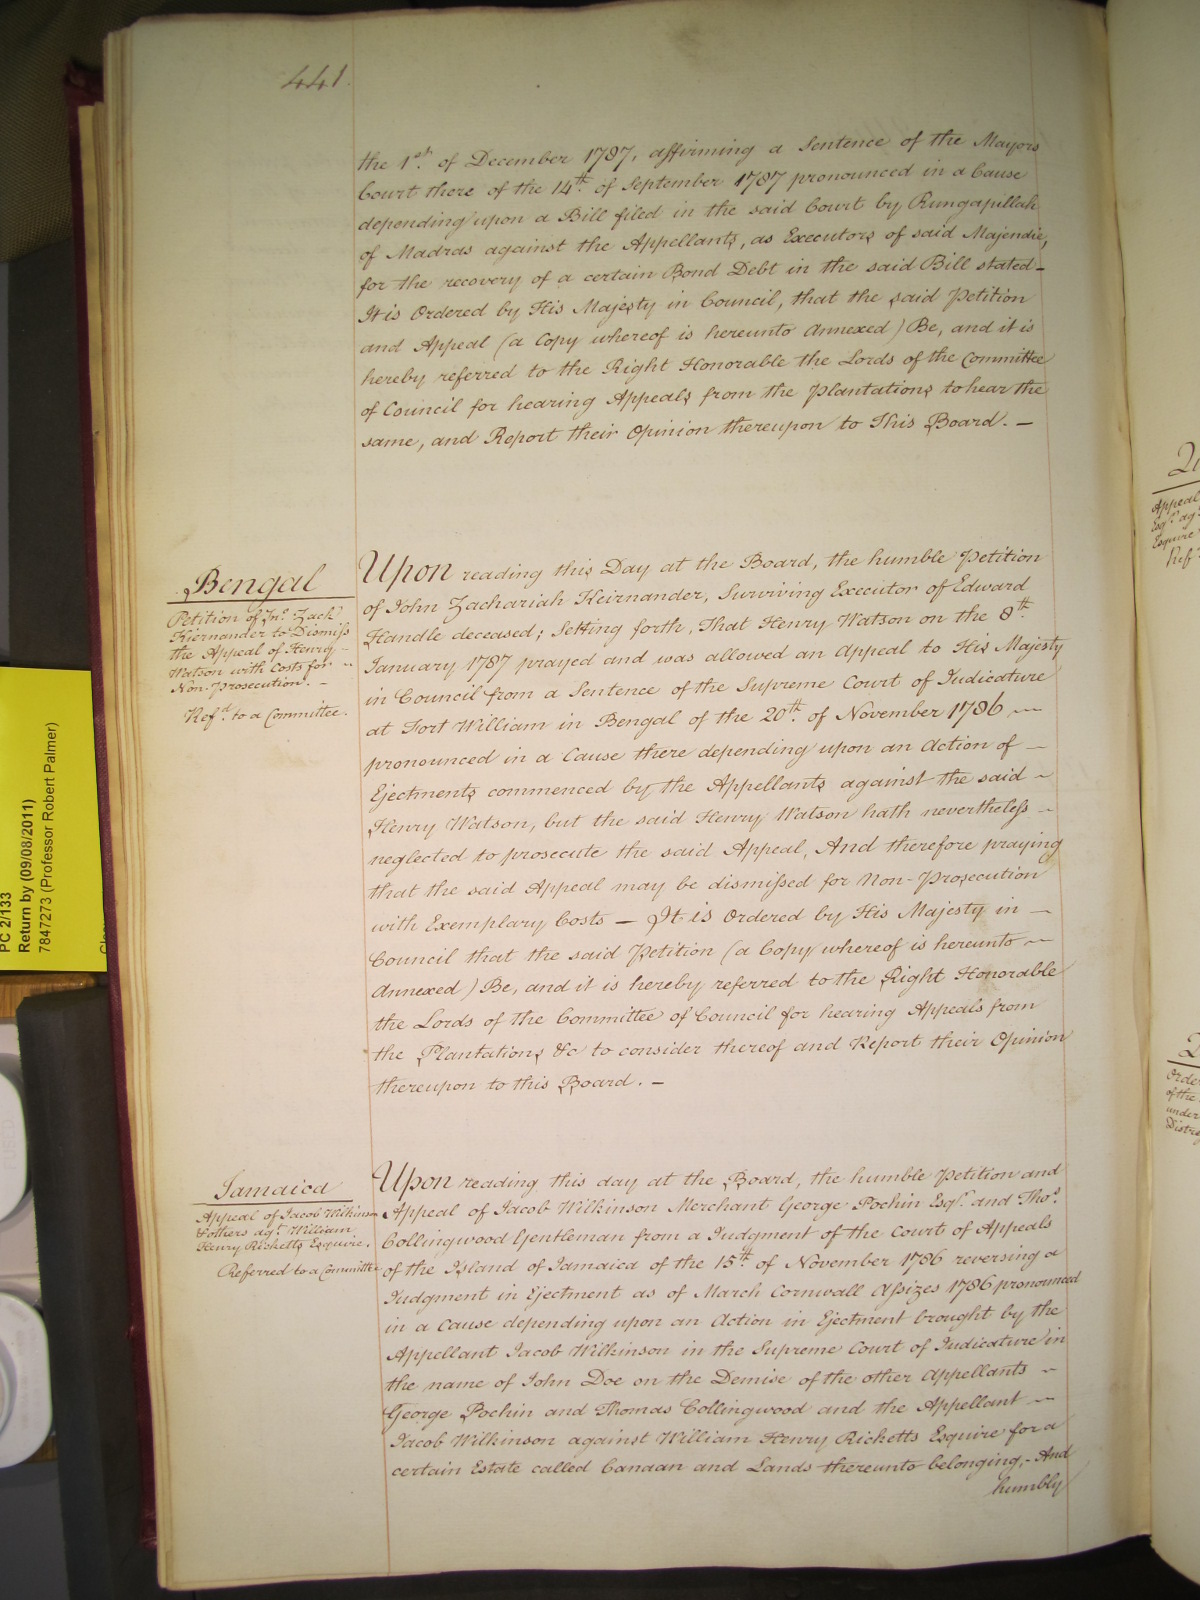 441.
the 1st. of December 1787, affirming a Sentence of the Mayors
Court there of the 14th. of September 1787 pronounced in a Cause
depending upon a Bill filed in the said Court by Rungapillah
of Madras against the Appellants, as Executors of said Majendie,
for the recovery of a certain Bond Debt in the said Bill stated –
It is Ordered by His Majesty in Council, that the said Petition
and Appeal (a Copy whereof is hereunto Annexed) Be, and it is
hereby referred to the Right Honorable the Lords of the Committee
of Council for hearing Appeals from the Plantations to hear the
same, and Report their Opinion thereupon to This Board. –
Bengal
Petition of Jno. Zach
Kiernander to Dismiss
the Appeal of Henry –
Watson with Costs for ~
Non-Prosecution. –
Refd. to a Committee.
Upon reading this Day at the Board, the humble Petition
of John Zachariah Keirnander, Surviving Executor of Edward
Handle deceased; Setting forth, That Henry Watson on the 8th.
January 1787 prayed and was allowed an Appeal to His Majesty
in Council from a Sentence of the Supreme Court of Judicature
at Fort William in Bengal of the 20th. of November 1786 ~
pronounced in a Cause there depending upon an Action of –
Ejectments commenced by the Appellants against the said ~
Henry Watson, but the said Henry Watson hath nevertheless ~
neglected to prosecute the said Appeal, And therefore praying
that the said Appeal may be dismissed for Non-Prosecution
with Exemplary Costs – It is Ordered by His Majesty in –
Council that the said Petition (a Copy whereof is hereunto ~
Annexed) Be, and it is hereby referred to the Right Honorable
the Lords of the Committee of Council for hearing Appeals from
the Plantations &c to consider thereof and Report their Opinion
thereupon to this Board. –
Jamaica
Appeal of Jacob Wilkinson
& others agt. William
Henry Ricketts Esquire.
Referred to a Committee
Upon reading this day at the Board, the humble Petition and
Appeal of Jacob Wilkinson Merchant George Pochin Esqr. and Thos.
Collingwood Gentleman from a Judgment of the Court of Appeals
of the Island of Jamaica of the 15th. of November 1786 reversing a
Judgment in Ejectment as of March Cornwall Assizes 1786 pronounced
in a Cause depending upon an Action in Ejectment brought by the
Appellant Jacob Wilkinson in the Supreme Court of Judicature in
the name of John Doe on the Demise of the other Appellants ~
George Pochin and Thomas Collingwood and the Appellant ~
Jacob Wilkinson against William Henry Ricketts Esquire for a
certain Estate called Canaan and Lands thereunto belonging, – And
humbly
PC 2/133
Return by (09/08/2011)
7847273 (Professor Robert Palmer)
Appeal
Esqr. ag
Esquire
Refd
Orde
of the
under